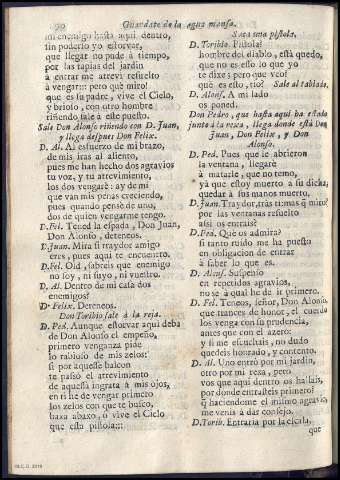 90 Guardate de la agua mansa.
mi enemigo hasta aqui dentro,
sin poderlo yo estorvar,
que llegar no pude à tiempo,
por las tapias del jardin
à entrar me atrevì resuelto
à vengar::: pero què miro!
que es su padre, vive el Cielo,
y brioso, con otro hombre
riñendo sale à este puesto.
Sale Don Alonso riñendo con D. Juan,
y llega despues Don Felix.
D. Al. Al esfuerzo de mi brazo,
de mis iras al aliento,
pues me han hecho dos agravios
tu voz, y tu atrevimiento,
los dos vengarè: ay de mi
que van mis penas creciendo,
pues quando pensè de uno,
dos de quien vengarme tengo.
D. Fel. Tened la espada, Don Juan,
Don Alonso, deteneos.
D. Juan. Mira si traydor amigo
eres, pues aqui te encuentro.
D. Fel. Oid, sabreis que enemigo
no soy, ni suyo, ni vuestro.
D. Al. Dentro de mi casa dos
enemigos?
Dⁿ Felix. Deteneos.
Don Toribio sale à la reja.
D. Ped. Aunque estorvar aqui deba
de Don Alonso el empeño,
primero venganza pide
lo rabioso de mis zelos:
si por aquesse balcon
te passò el atrevimiento
de aquella ingrata à mis ojos,
en ti he de vengar primero
los zelos con que te busco,
baxa abaxo, ò vive el Cielo
que esta pistola:::
Saca una pistola.
D. Toribio. Pistola!
hombre del diablo, està quedo,
que no es esto lo que yo
te dixe; pero què veo!
què es esto, tio? Sale al tablado.
D. Alons. A mi lado
os poned.
Don Pedro, que hasta aqui ha estado
junto à la reja, llega donde està Don
Juan, Don Felix, y Don
Alonso.
D. Ped. Pues que le abrieron
la ventana, llegarè
à matarle, que no temo,
yà que estoy muerto à su dicha,
quedar à sus manos muerto.
D. Juan. Traydor, tras ti mas q̃ miro?
por las ventanas resuelto
assi os entrais?
D. Ped. Què os admira?
si tanto ruido me ha puesto
en obligacion de entrar
à saber lo que es.
D. Alons. Suspenso
en repetidos agravios,
no sè à qual he de ir primero.
D. Fel. Teneos, señor, Don Alonso,
que trances de honor, el cuerdo
los venga con su prudencia,
antes que con el azero:
y si me escuchais, no dudo
quedeis honrado, y contento.
D. Al. Uno entrò por mi jardin,
otro por mi rexa, pero
vos que aqui dentro os hallais,
por donde entrasteis primero?
q̃ haciendome el mismo agravio,
me venis à dar consejo.
D. Torib. Entraria por la cierla,
que